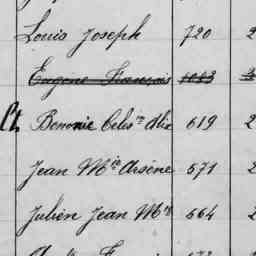 Louis Joseph 720 2
Eugène François 1083
Ct Benonie Celis.te Alix 619 2
Jean M.ie Arsène 571 2
Julien Jean M.ie 664 2